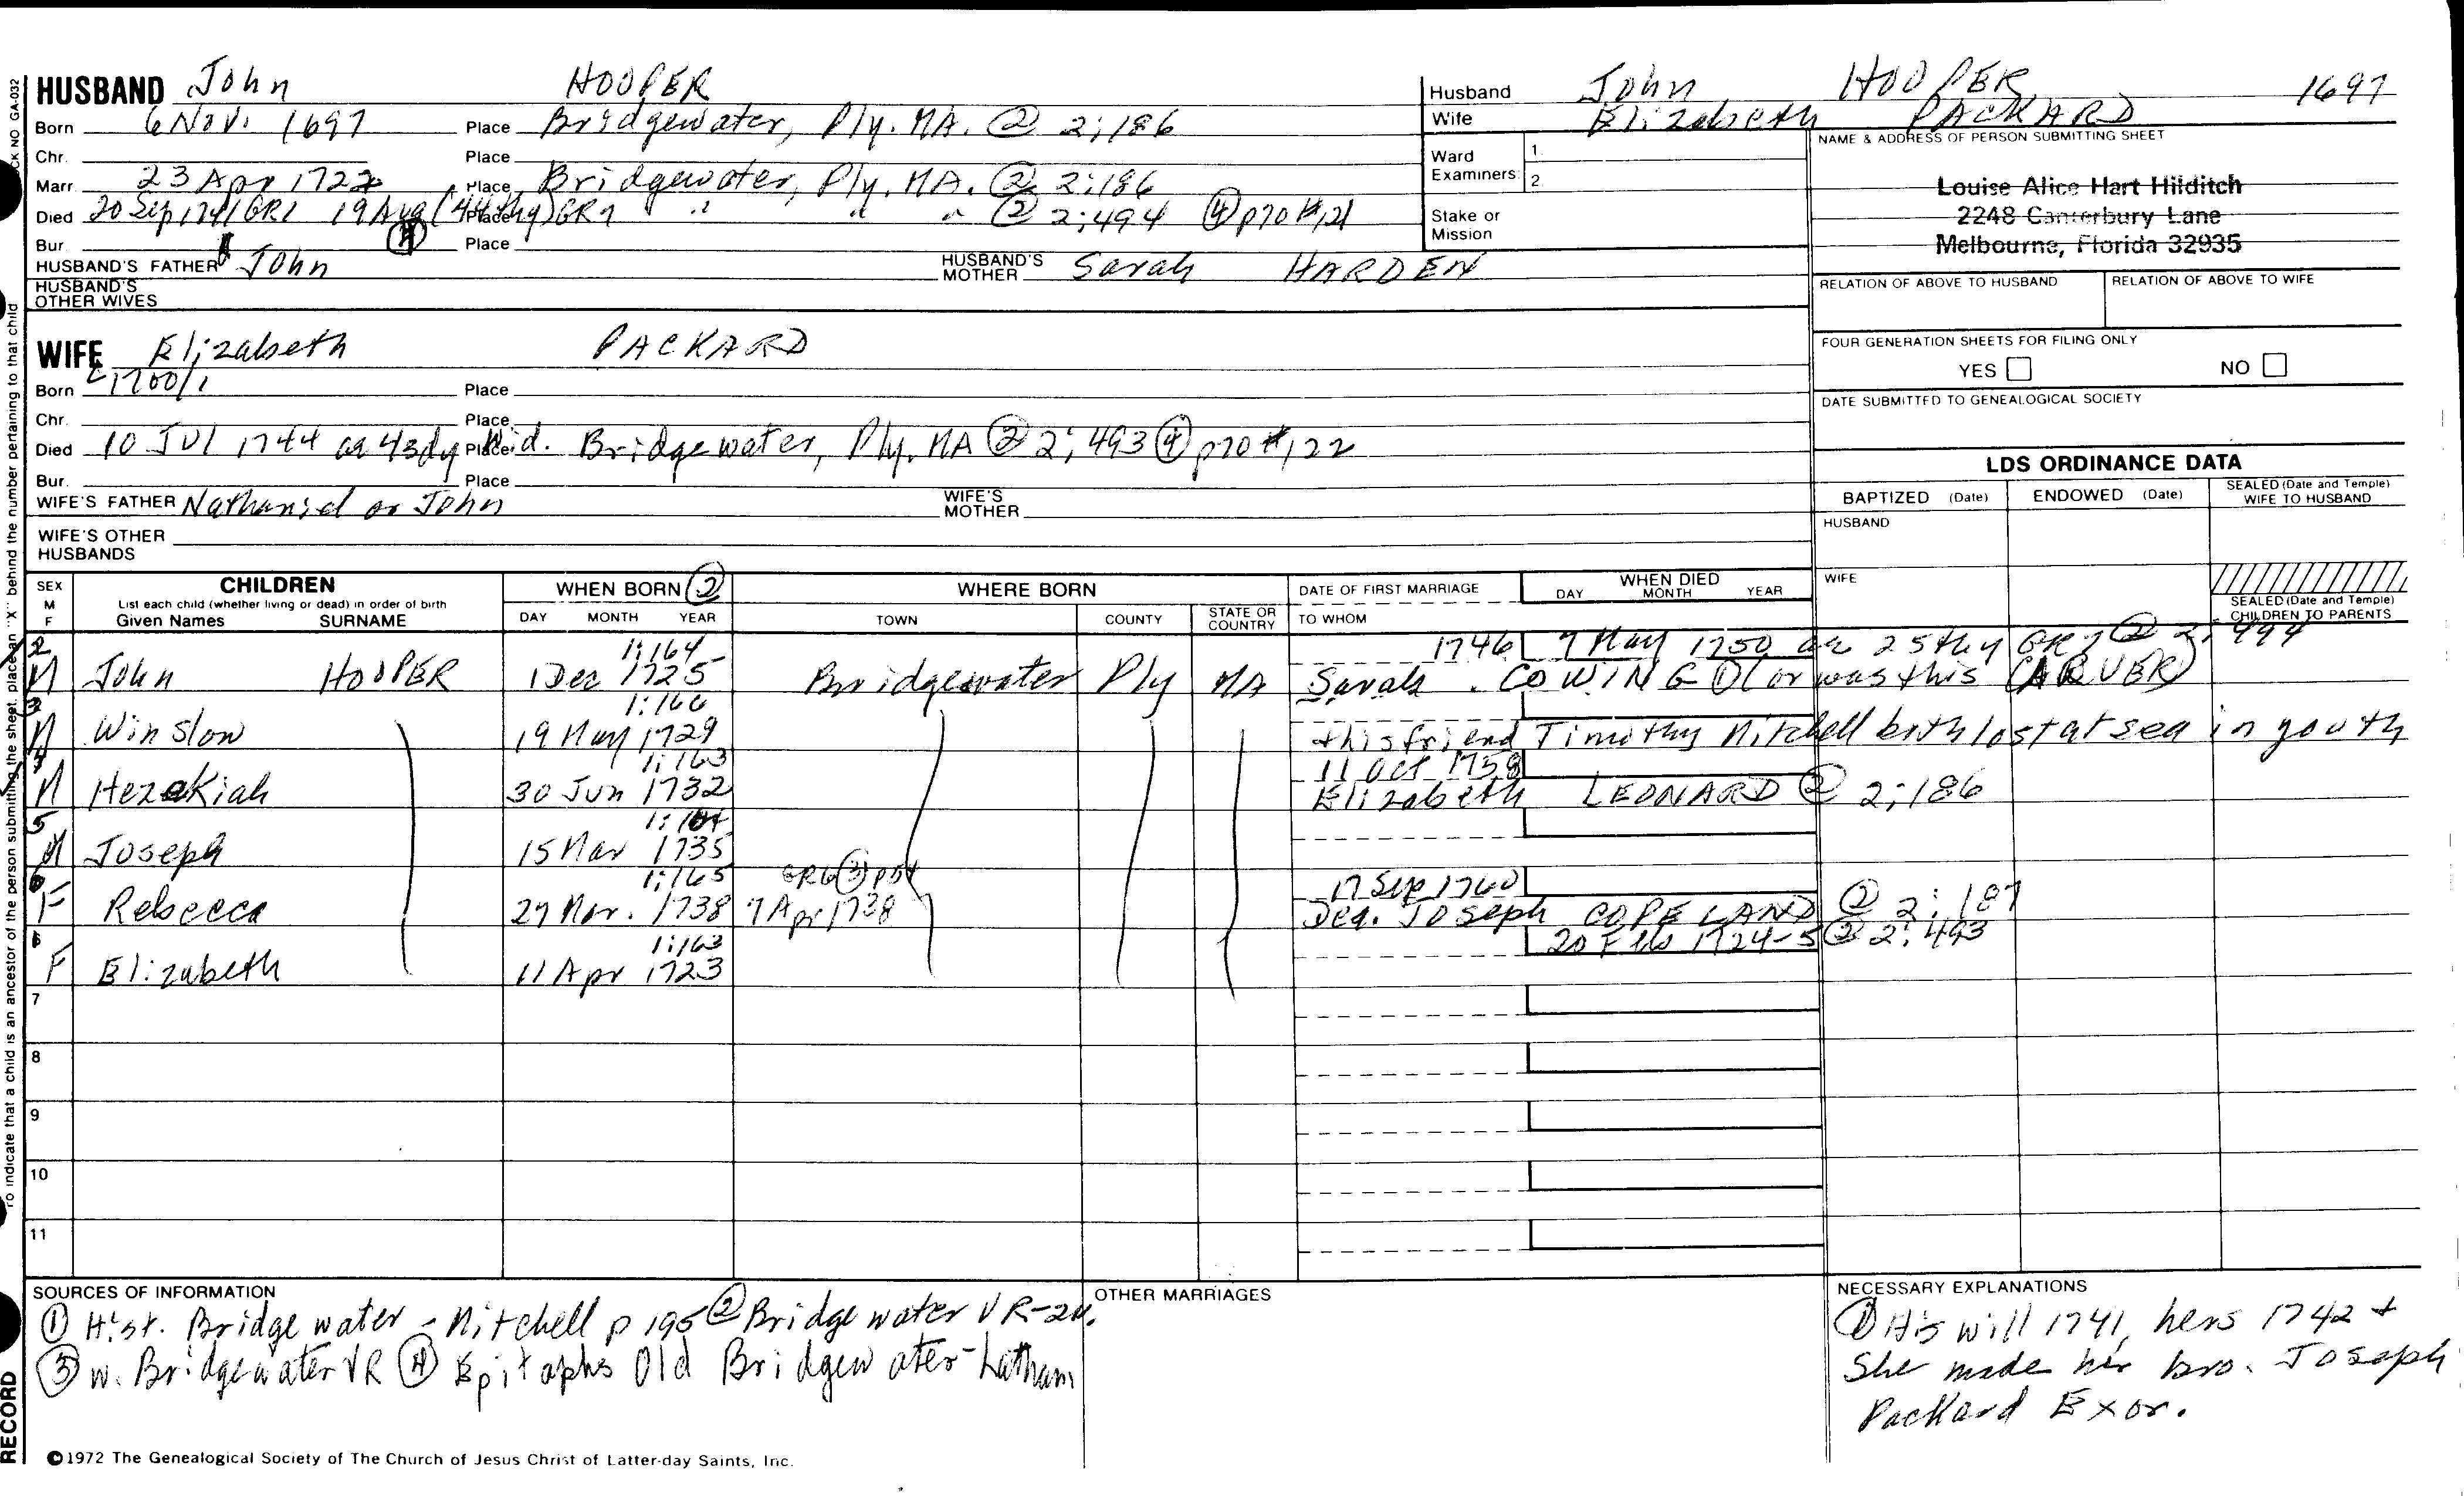 HUSBAND John HOOPER
Born 6 Nov. 1697 Place Bridgewater, Ply. MA. ② 2;186
Chr. Place
Marr. 23 Apr 1722 Place Bridgewater, Ply. MA. ② 2:186
Died 20 Sep 1741 GR1 19 Aug (44thy) GR7 Place " " " ② 2;494 ④ p70 #121
Bur. ④ Place
HUSBAND'S FATHER John HUSBAND'S MOTHER Sarah HARDEN
HUSBAND'S OTHER WIVES
WIFE Elizabeth PACKARD
Born c1700/1 Place
Chr. Place
Died 10 Jul 1744 ae 43dy Wid. Place Bridgewater, Ply. MA ② 2;493 ④ p70 #122
Bur. Place
WIFE'S FATHER Nathaniel or John WIFE'S MOTHER
WIFE'S OTHER HUSBANDS
Husband John HOOPER 1697
Wife Elizabeth PACKARD
Ward Examiners: 1.
2
Stake or Mission
NAME & ADDRESS OF PERSON SUBMITTING SHEET
Louise Alice Hart Hilditch
2248 Canterbury Lane
Melbourne, Florida 32935
RELATION OF ABOVE TO HUSBAND RELATION OF ABOVE TO WIFE
FOUR GENERATION SHEETS FOR FILING ONLY
YES NO
DATE SUBMITTED TO GENEALOGICAL SOCIETY
LDS ORDINANCE DATA
BAPTIZED (Date) ENDOWED (Date) SEALED (Date and Temple) WIFE TO HUSBAND
HUSBAND
WIFE
SEALED (Date and Temple) CHILDREN TO PARENTS
SEX M F CHILDREN WHEN BORN ② WHERE BORN DATE OF FIRST MARRIAGE WHEN DIED
List each child (whether living or dead) in order of birth DAY MONTH YEAR
Given Names SURNAME DAY MONTH YEAR TOWN COUNTY STATE OR COUNTRY TO WHOM
2 1:164 1746 7 May 1750 ae 25thy GR7 ② 2; 494
M John HOOPER 1 Dec 1725 Bridgewater Ply MA Sarah COWING ① (or was this CARVER)
3 1:166
M Winslow 19 May 1729 + his friend Timothy Mitchell both lost at sea in youth
4 1:163 11 Oct 1758
M Hezekiah 30 Jun 1732 Elizabeth LEONARD ② 2;186
5 1:164
M Joseph 15 Mar 1735
6 1:165 GR6 ③ p54 17 Sep 1760
F Rebecca 27 Mar. 1738 7 Apr 1738 Dea. Joseph COPELAND ② 2:187
1:163 20 Feb 1724-5 ② 2:493
F Elizabeth 11 Apr 1723
7
8
9
10
11
SOURCES OF INFORMATION
① Hist. Bridgewater - Mitchell p 195 ② Bridgewater VR-2v.
③ W. Bridgewater VR ④ Epitaphs Old Bridgewater-Latham
OTHER MARRIAGES
NECESSARY EXPLANATIONS
① His will 1741, hers 1742 +
She made her bro. Joseph
Packard Exor.
©1972 The Genealogical Society of The Church of Jesus Christ of Latter-day Saints, Inc.
CK NO GA-032
To indicate that a child is an ancestor of the person submitting the sheet, place an "X" behind the number pertaining to that child
RECORD